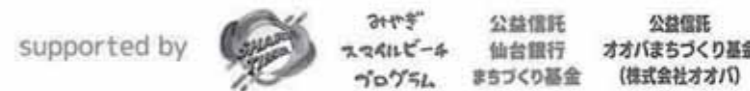 supported by
みやぎ
スマイルビーチ
プログラム
公益信託
仙台銀行
まちづくり基金
公益信託
オオバまちづくり基金
(株式会社オオバ)